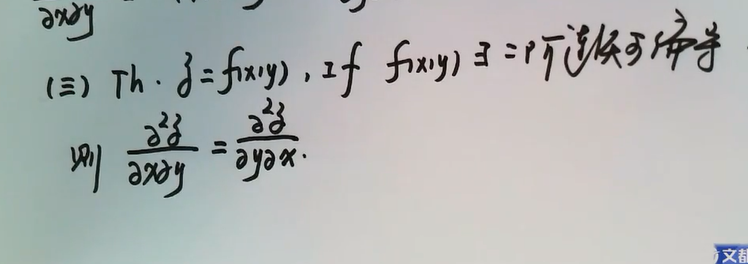 ∂x∂y
(三) Th. z=f(x,y), If f(x,y) ∃ 二阶连续可偏导
则 ∂²z/∂x∂y = ∂²z/∂y∂x.
文都